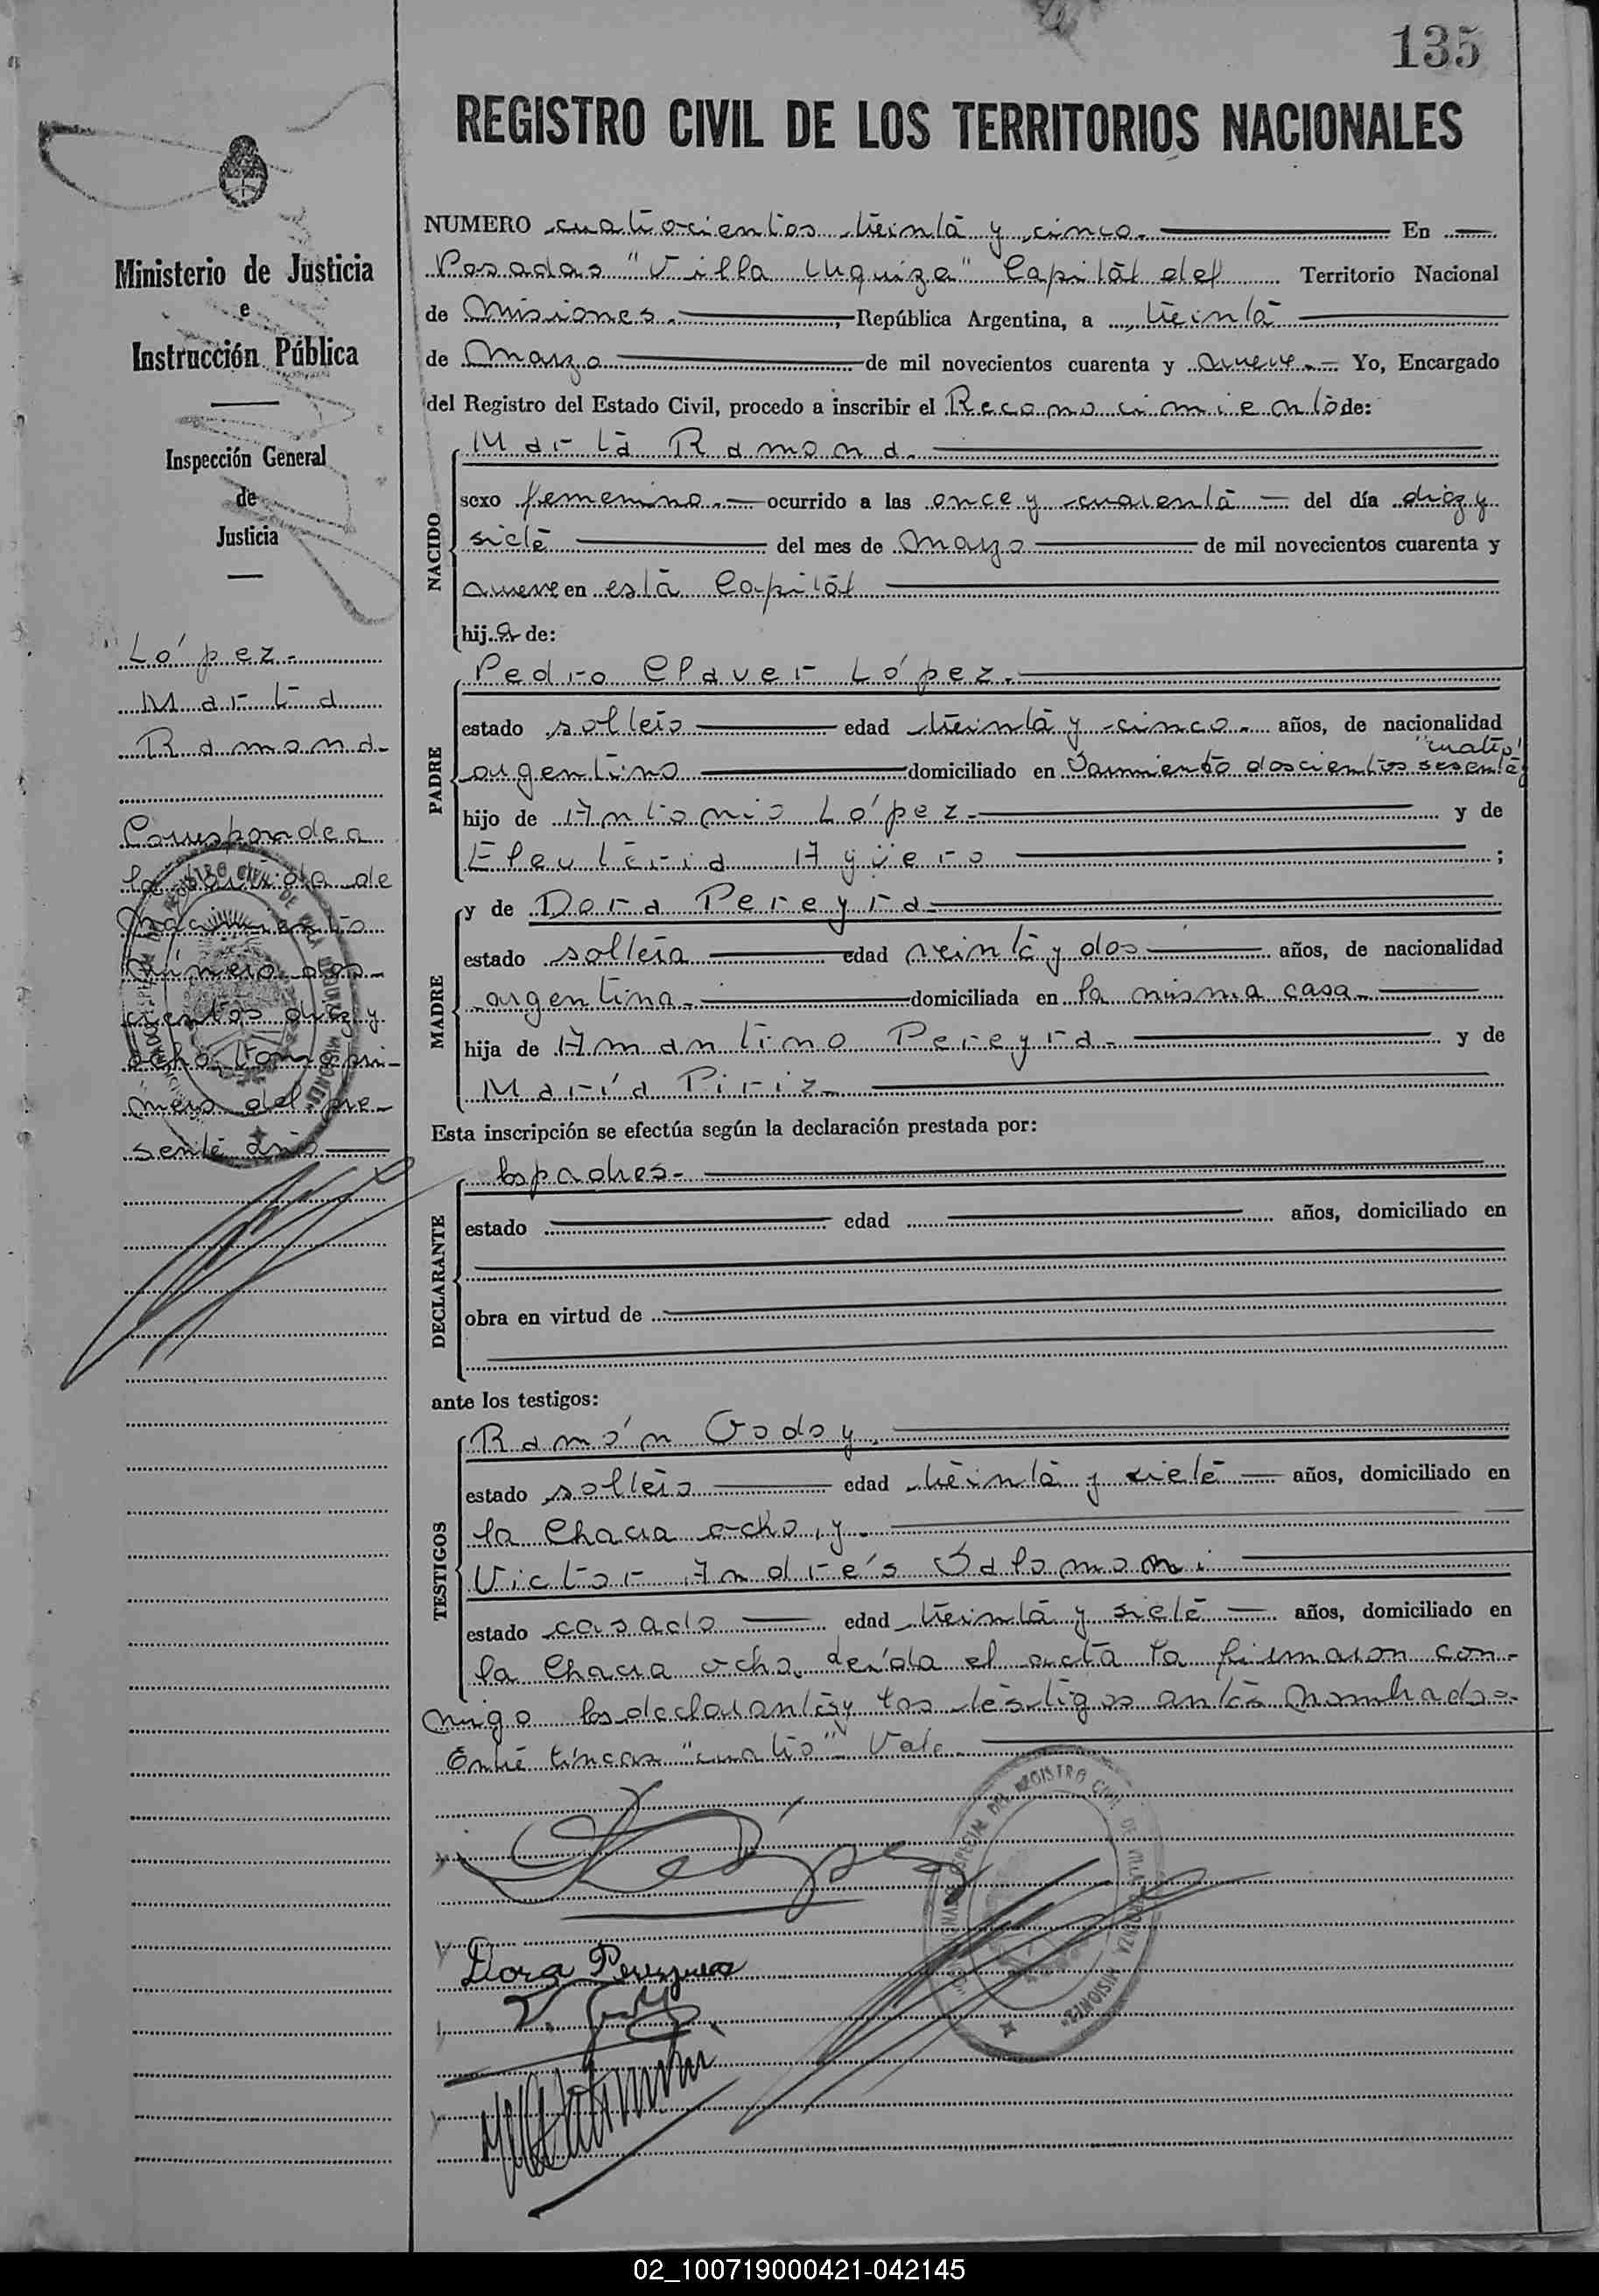 135
REGISTRO CIVIL DE LOS TERRITORIOS NACIONALES
Ministerio de Justicia
e
Instrucción Pública
Inspección General
de
Justicia
López.-
Marta
Ramona-
Corresponde a
la partida de
nacimiento
número dos-
cientos diez y
ocho, tomo pri-
mero del pre-
sente año
NUMERO cuatrocientos treinta y cinco. En
Posadas "Villa Urquiza" Capital del Territorio Nacional
de Misiones. , República Argentina, a treinta
de Marzo de mil novecientos cuarenta y nueve.- Yo, Encargado
del Registro del Estado Civil, procedo a inscribir el Reconocimiento de:
NACIDO
Marta Ramona.
sexo femenino.- ocurrido a las once y cuarenta del día diez y
siete del mes de Marzo de mil novecientos cuarenta y
nueve en esta Capital
hij a de:
PADRE
Pedro Claver López.
estado soltero edad treinta y cinco. años, de nacionalidad
"cuatro"
argentino domiciliado en Sarmiento doscientos sesenta y
hijo de Antonio López.- y de
Eleuteria Agüero ;
MADRE
y de Dora Pereyra.
estado soltera edad veinte y dos años, de nacionalidad
argentina.- domiciliada en la misma casa.-
hija de Amantino Pereyra.- y de
María Piriz.-
Esta inscripción se efectúa según la declaración prestada por:
DECLARANTE
los padres.-
estado edad años, domiciliado en
obra en virtud de
ante los testigos:
TESTIGOS
Ramón Godoy.
estado soltero edad treinta y siete años, domiciliado en
la Chacra ocho, y.
Victor Andrés Salomoni.
estado casado edad treinta y siete años, domiciliado en
la Chacra ocho. Leída el acta la firmaron con-
migo los declarantes y los testigos antes nombrados.
Entre líneas "cuatro" Vale.
López
Dora Pereyra
REGISTRO CIVIL DE VILLA URQUIZA MISIONES
02_100719000421-042145